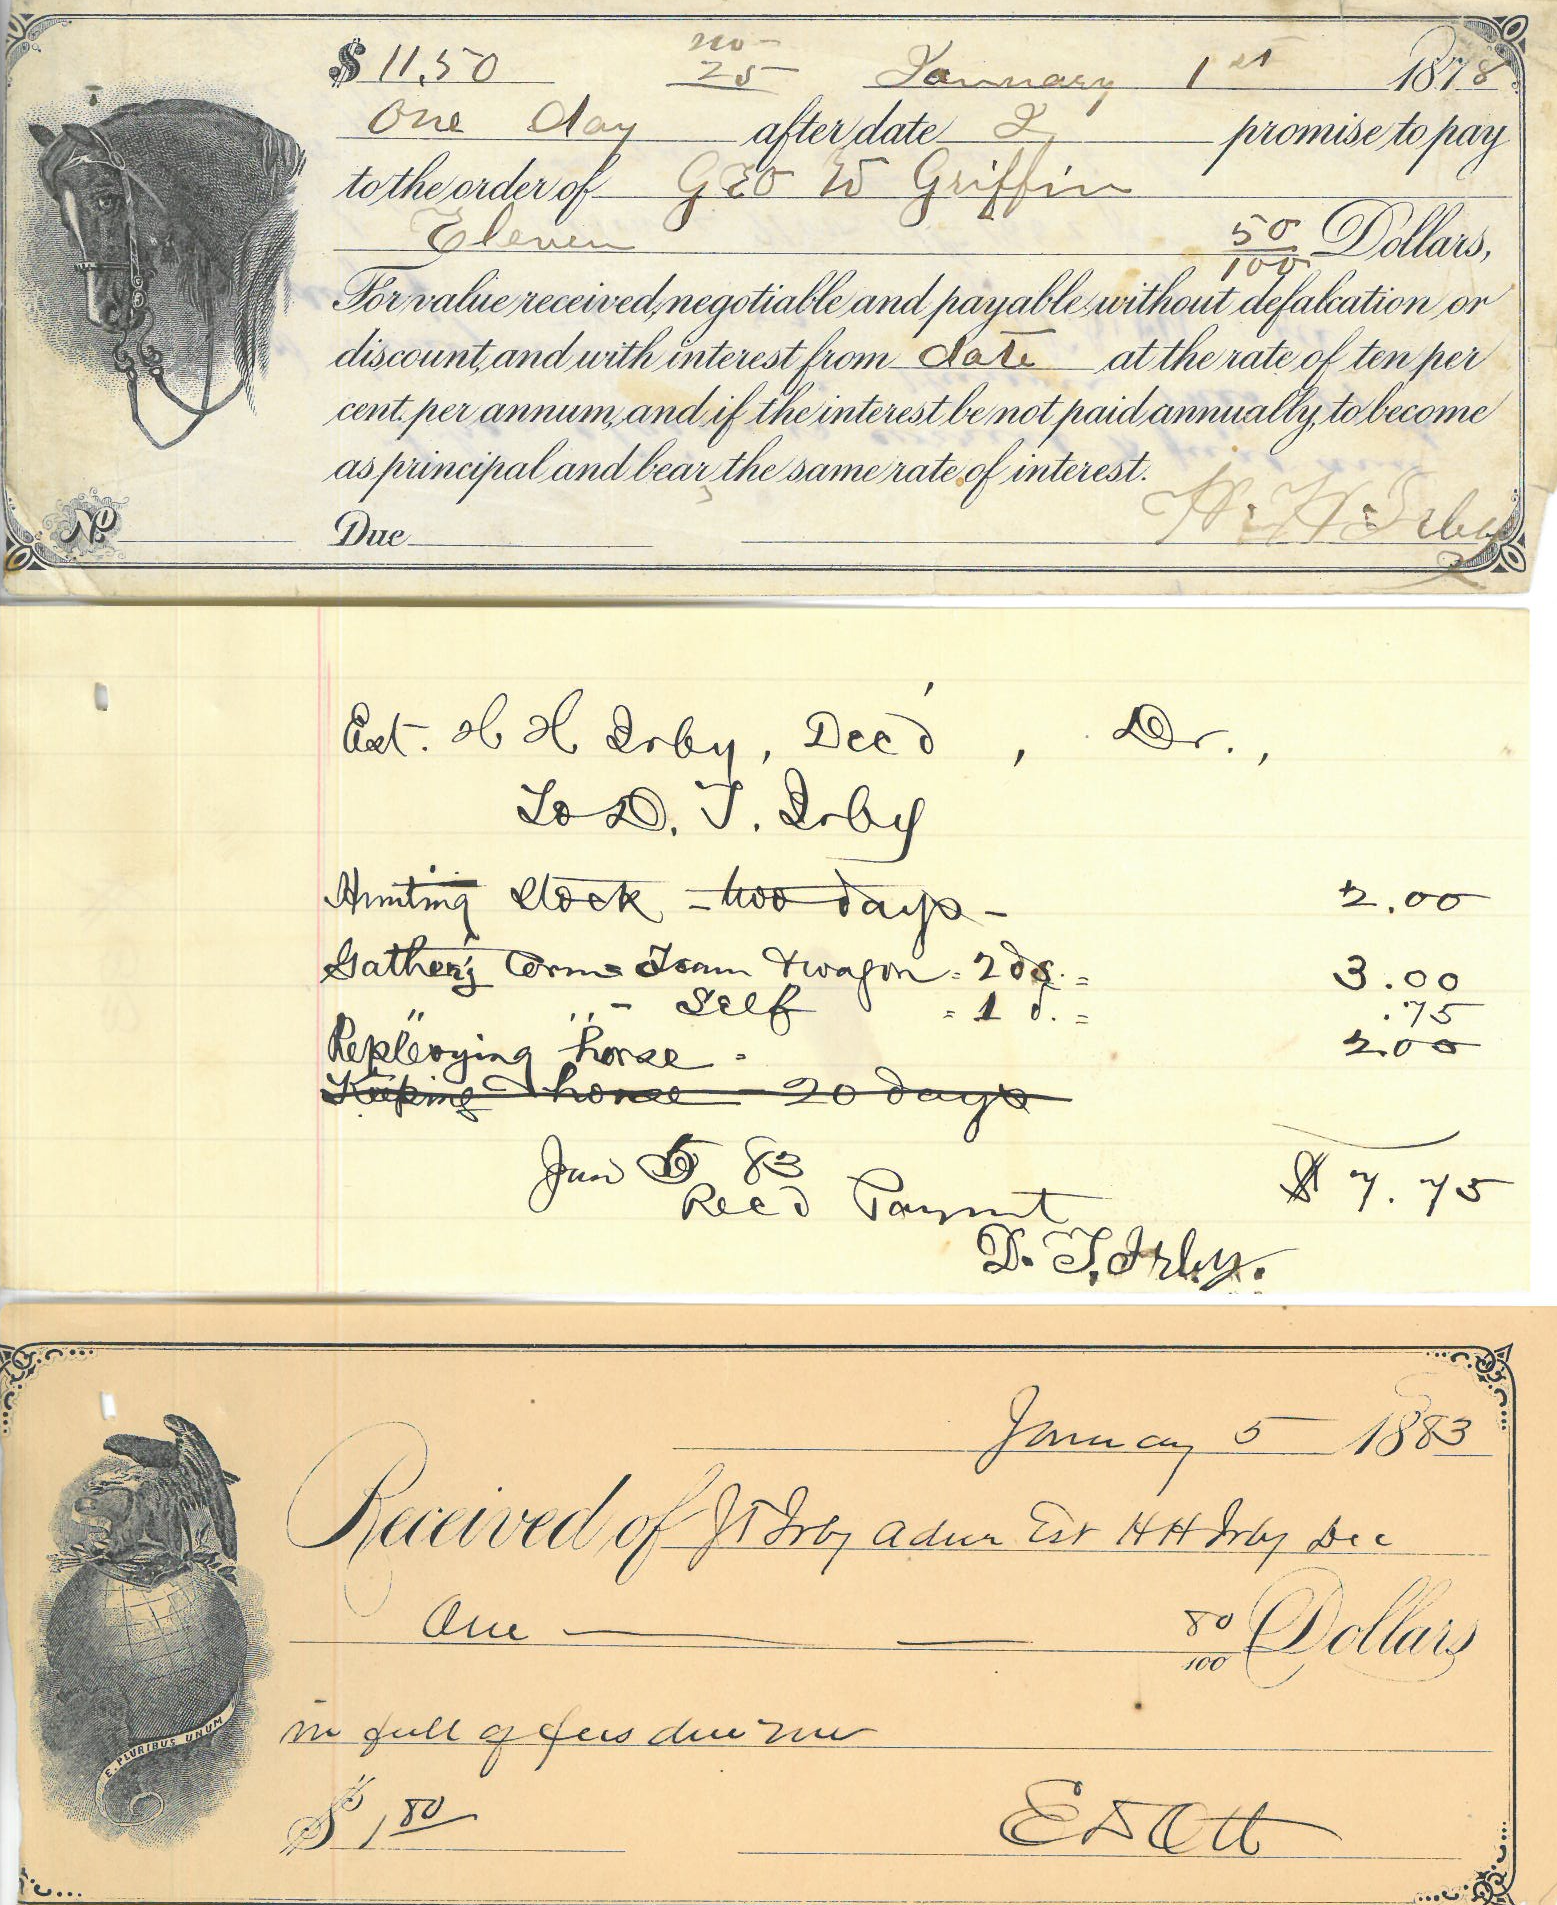 $ 11.50 no- 25 January 1st 1878
One day after date I promise to pay
to the order of GEO W Griffin
Eleven 50/100 Dollars,
For value received, negotiable and payable without defalcation or
discount, and with interest from date at the rate of ten per
cent. per annum, and if the interest be not paid annually, to become
as principal and bear the same rate of interest.
No. Due H. H. Irby
Est. H H Irby, Dec'd, Dr.,
To D. T. Irby
Hunting stock - two days - 2.00
Gather'g Corn = Team & wagon = 2 ds. = 3.00
" " - Self = 1 d. = .75
Replevying horse - 2.00
Keeping horse - 20 days
Jan 5 83 $ 7.75
Rec'd Paymnt
D. T. Irby.
January 5 1883
Received of J T Irby Admr Est H H Irby Dec
One 80/100 Dollars
in full of fees due me
E. PLURIBUS UNUM
$ 1.80 E D Ott